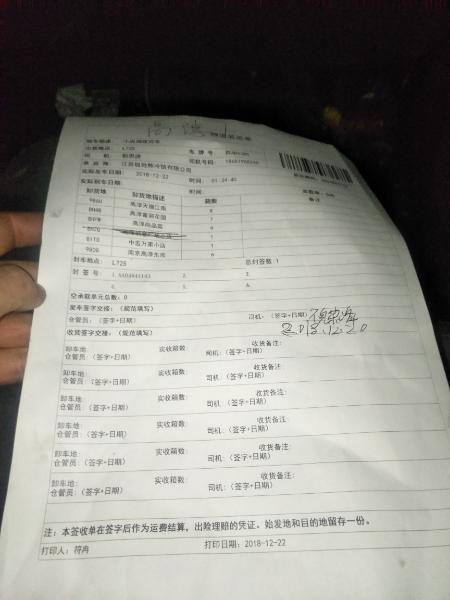 高淳 1 物流装运单
装车描述: 小店调度简单
出货地点: L725
司 机: 车 牌 号
承 运 商 江苏 冷链有限公司 司机号码:
实际发车日期: 2018-12-22 时间: 01:24:40
实际到车日期: 时间:
卸货地 卸货地描述 箱数 备注
高淳天福江南 6
高淳富丽花园 7
高淳尚品苑 6
中志万家小店 1
南京高淳东河 6
封车地点: L725 总封签数 1
封 签 号: 1. 2. 3.
4. 5. 6.
空承载单元总数: 0
发车签字交接: (规范填写)
仓管员: (签字+日期) 司机: (签字+日期)
2018.12.20
收货签字交接: (规范填写)
卸车地: 实收箱数: 收货备注:
仓管员: (签字+日期) 司机: (签字+日期)
卸车地: 实收箱数: 收货备注:
仓管员: (签字+日期) 司机: (签字+日期)
卸车地: 实收箱数: 收货备注:
仓管员: (签字+日期) 司机: (签字+日期)
卸车地: 实收箱数: 收货备注:
仓管员: (签字+日期) 司机: (签字+日期)
卸车地: 实收箱数: 收货备注:
仓管员: (签字+日期) 司机: (签字+日期)
卸车地: 实收箱数: 收货备注:
仓管员: (签字+日期) 司机: (签字+日期)
注: 本签收单在签字后作为运费结算, 出险理赔的凭证。始发地和目的地留存一份。
打印人: 符冉 打印日期: 2018-12-22